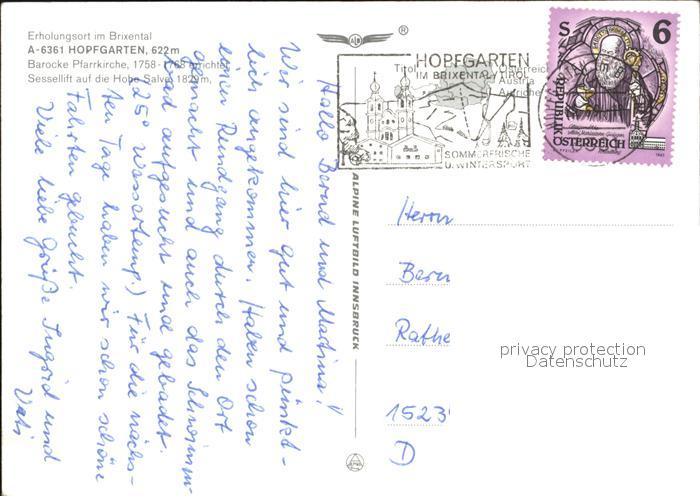 Erholungsort im Brixental
A-6361 HOPFGARTEN, 622m
Barocke Pfarrkirche, 1758-1768 errichtet
Sessellift auf die Hohe Salve, 1829m,
Hallo Bernd und Martina!
Wir sind hier gut und pünkt-
lich angekommen. Haben schon
einen Rundgang durch den Ort
gemacht und auch das Schwimm-
bad aufgesucht und gebadet.
(25° Wassertemp.) Für die nächs-
ten Tage haben wir schon schöne
Fahrten gebucht.
Viele liebe Grüße Ingrid und
Vati
ALPINE LUFTBILD INNSBRUCK
HOPFGARTEN
IM BRIXENTAL / TIROL
SOMMERFRISCHE
U. WINTERSPORT
Tirol
Österreich
Austria
Autriche
S 6
REPUBLIK
ÖSTERREICH
Herrn
Bern
Rathe
1523
D
privacy protection
Datenschutz